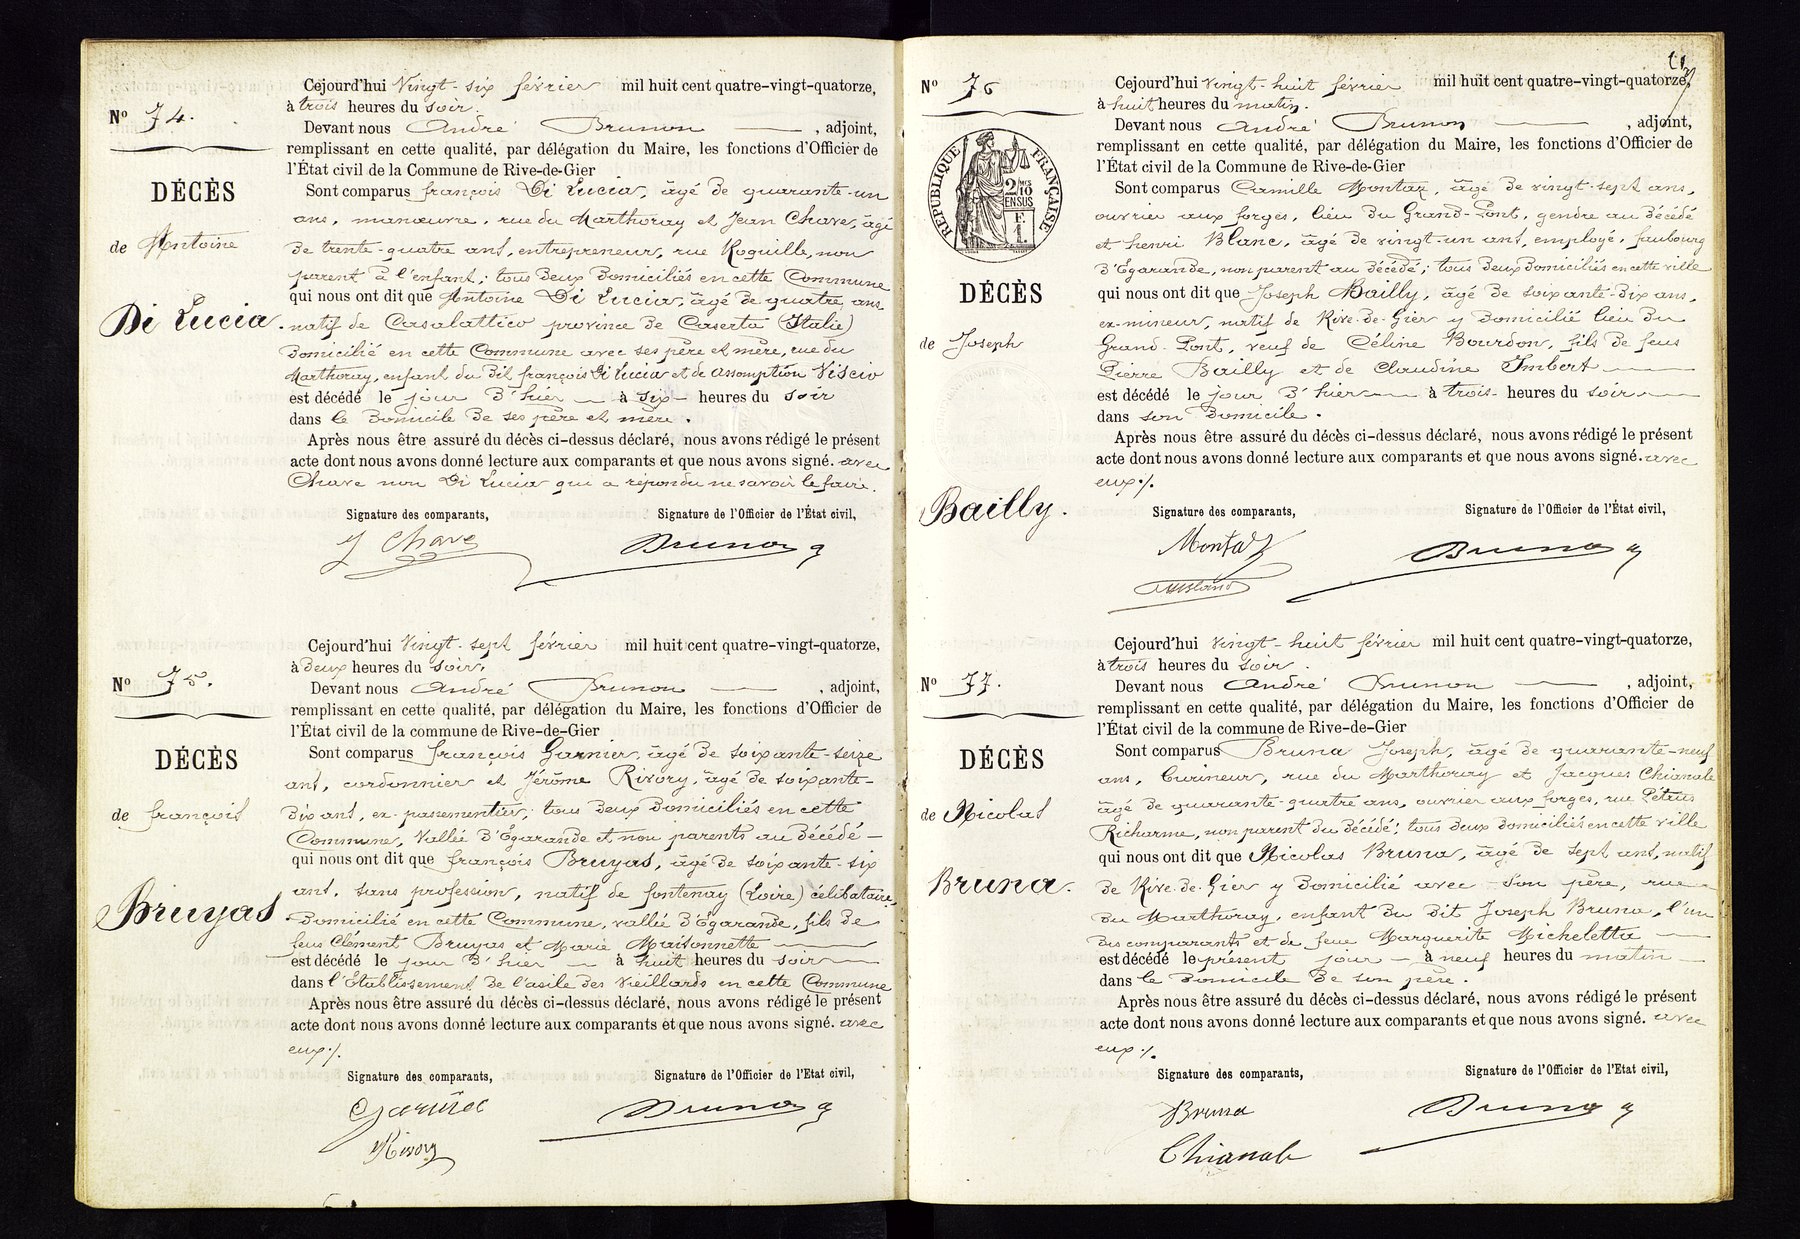 Nº 74.
DÉCÈS
de Antoine
Di Lucia.
Cejourd'hui Vingt-six février mil huit cent quatre-vingt-quatorze,
à trois heures du soir.
Devant nous André Brunon, adjoint,
remplissant en cette qualité, par délégation du Maire, les fonctions d'Officier de
l'État civil de la Commune de Rive-de-Gier
Sont comparus françois Di Lucia, âgé de quarante-un
ans, manœuvre, rue du Marthoray et Jean Chave, âgé
de trente-quatre ans, entrepreneur, rue Roguille, non
parent à l'enfant; tous deux domiciliés en cette Commune
qui nous ont dit que Antoine Di Lucia, âgé de quatre ans,
natif de Casalattico province de Caserta (Italie)
domicilié en cette Commune avec ses père et mère, rue du
Marthoray, enfant du dit françois Di Lucia et de Assomption Viscio
est décédé le jour d'hier à six heures du soir
dans le domicile de ses père et mère.
Après nous être assuré du décès ci-dessus déclaré, nous avons rédigé le présent
acte dont nous avons donné lecture aux comparants et que nous avons signé. avec
Chave non Di Lucia qui a répondu ne savoir le faire.
Signature des comparants, Signature de l'Officier de l'État civil,
J Chave Brunon
Nº 75.
DÉCÈS
de françois
Bruyas
Cejourd'hui Vingt-sept février mil huit cent quatre-vingt-quatorze,
à deux heures du soir,
Devant nous André Brunon, adjoint,
remplissant en cette qualité, par délégation du Maire, les fonctions d'Officier de
l'État civil de la commune de Rive-de-Gier
Sont comparus françois Garnier, âgé de soixante-seize
ans, cordonnier et Jérôme Rivory, âgé de soixante-
dix ans, ex-passementier, tous deux domiciliés en cette
Commune, Vallée d'Egarande et non parents au décédé
qui nous ont dit que françois Bruyas, âgé de soixante-six
ans, sans profession, natif de fontenay (Loire) célibataire,
domicilié en cette Commune, vallée d'Egarande, fils de
feus Clément Bruyas et Marie Maisonnette
est décédé le jour d'hier à huit heures du soir
dans l'Etablissement de l'asile des Vieillards en cette Commune
Après nous être assuré du décès ci-dessus déclaré, nous avons rédigé le présent
acte dont nous avons donné lecture aux comparants et que nous avons signé. avec
eux ./.
Signature des comparants, Signature de l'Officier de l'Etat civil,
Garnier Brunon
Rivory
Nº 76
RÉPUBLIQUE FRANÇAISE
2/10 MES
EN SUS
F.
1.
DÉCÈS
de Joseph
Bailly.
Cejourd'hui vingt-huit février mil huit cent quatre-vingt-quatorze,
à huit heures du matin.
Devant nous André Brunon, adjoint,
remplissant en cette qualité, par délégation du Maire, les fonctions d'Officier de
l'État civil de la Commune de Rive-de-Gier
Sont comparus Camille Montaz, âgé de vingt-sept ans,
ouvrier aux forges, lieu du Grand-Pont, gendre au décédé
et henri Blanc, âgé de vingt-un ans, employé, faubourg
d'Egarande, non parent au décédé; tous deux domiciliés en cette ville
qui nous ont dit que Joseph Bailly, âgé de soixante-dix ans,
ex-mineur, natif de Rive-de-Gier y domicilié lieu du
Grand-Pont, veuf de Céline Bourdon, fils de feus
Pierre Bailly et de Claudine Imbert
est décédé le jour d'hier à trois heures du soir
dans son domicile.
Après nous être assuré du décès ci-dessus déclaré, nous avons rédigé le présent
acte dont nous avons donné lecture aux comparants et que nous avons signé. avec
eux ./.
Signature des comparants, Signature de l'Officier de l'État civil,
Montaz Brunon
Nº 77.
DÉCÈS
de Nicolas
Bruna.
Cejourd'hui vingt-huit février mil huit cent quatre-vingt-quatorze,
à trois heures du soir.
Devant nous André Brunon, adjoint,
remplissant en cette qualité, par délégation du Maire, les fonctions d'Officier de
l'État civil de la commune de Rive-de-Gier
Sont comparus Bruna Joseph, âgé de quarante-neuf
ans, burineur, rue du Marthoray et Jacques Chianale
âgé de quarante-quatre ans, ouvrier aux forges, rue Pétrus
Richarme, non parent du décédé; tous deux domiciliés en cette ville
qui nous ont dit que Nicolas Bruna, âgé de sept ans, natif
de Rive-de-Gier y domicilié avec son père, rue
du Marthoray, enfant du dit Joseph Bruna, l'un
des comparants et de feue Marguerite Micheletta
est décédé le présent jour à neuf heures du matin
dans le domicile de son père.
Après nous être assuré du décès ci-dessus déclaré, nous avons rédigé le présent
acte dont nous avons donné lecture aux comparants et que nous avons signé. avec
eux ./.
Signature des comparants, Signature de l'Officier de l'Etat civil,
Bruna Brunon
Chianale